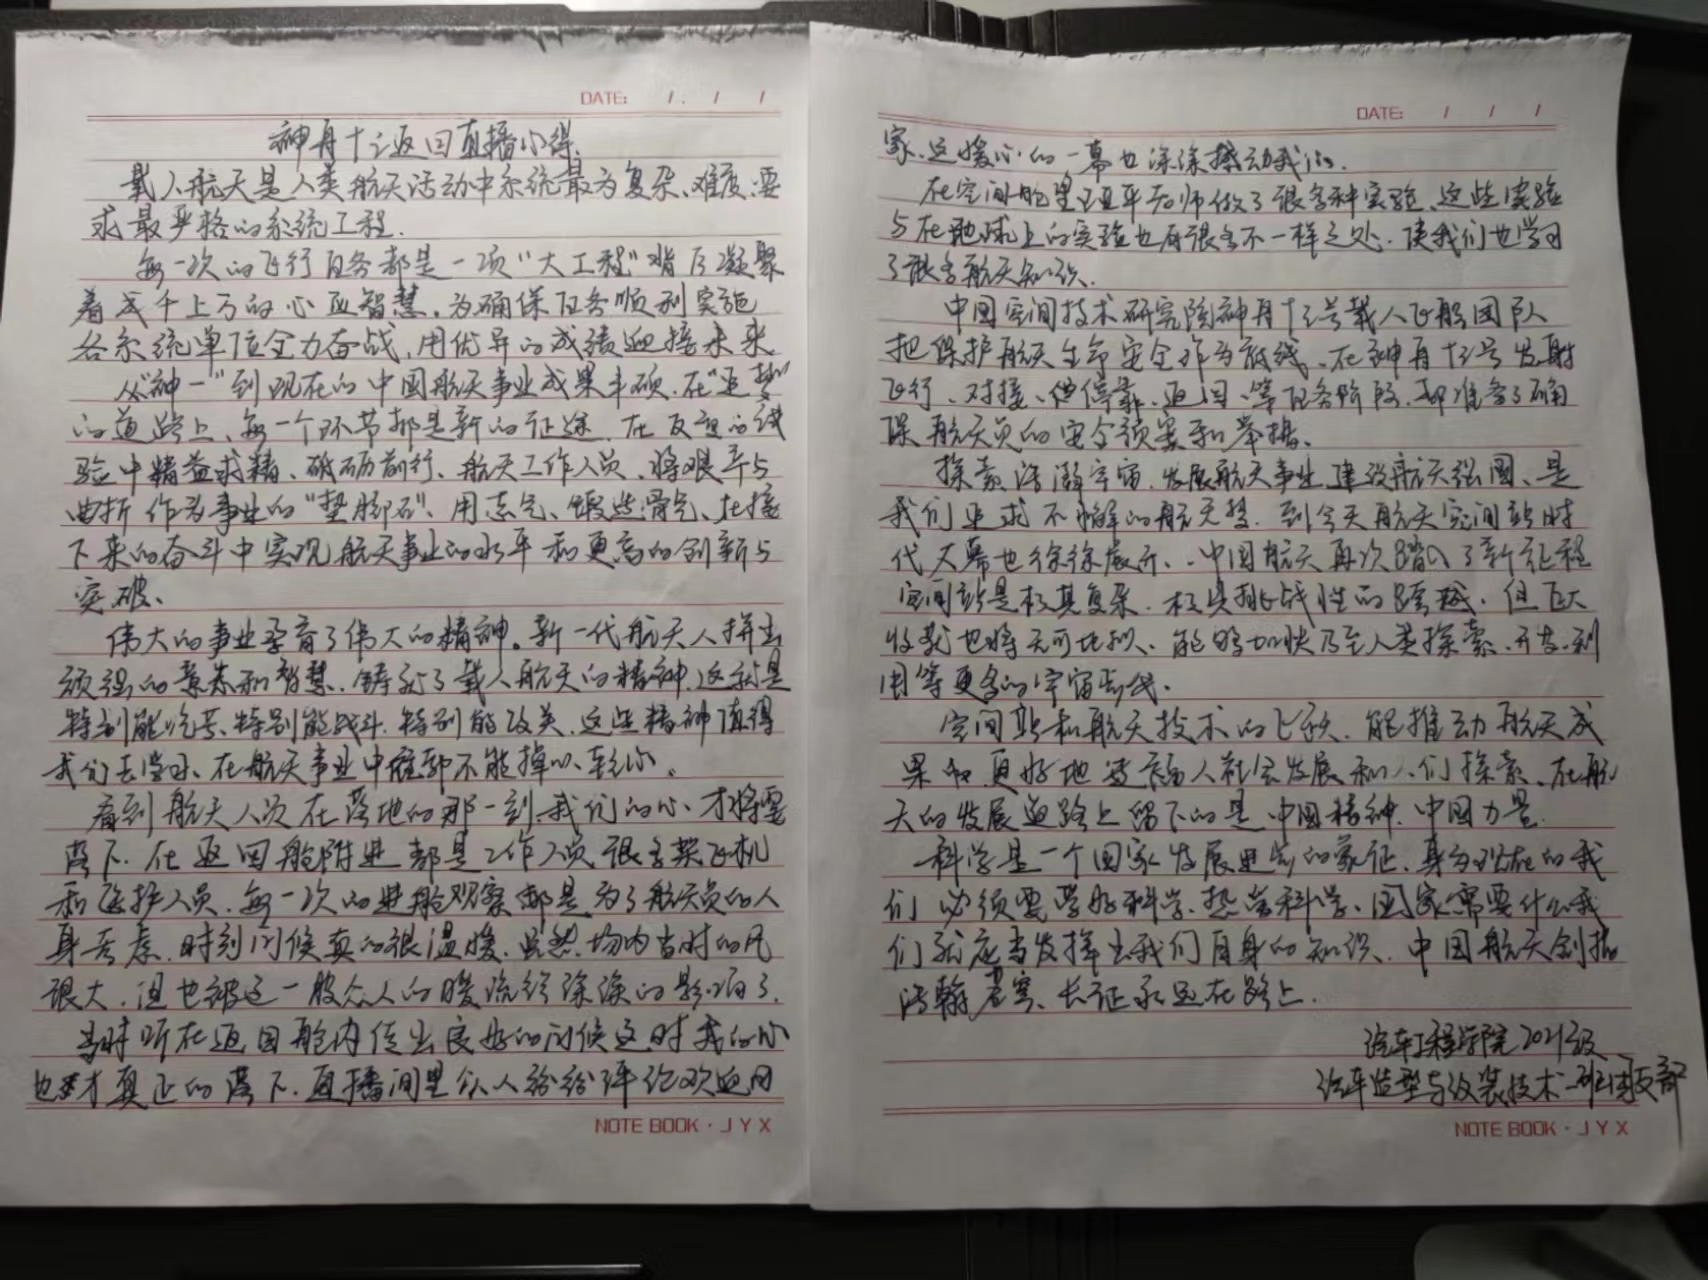 DATE: / . / /
神舟十三返回直播心得.
载人航天是人类航天活动中系统最为复杂、难度、要
求最严格的系统工程.
每一次的飞行任务都是一项"大工程"背后凝聚
着成千上万的心血智慧.为确保任务顺利实施
各系统单位全力奋战,用优异的成绩迎接未来
从"神一"到现在的中国航天事业成果丰硕.在"追梦"
的道路上、每一个环节都是新的征途.在反复的试
验中精益求精、砥砺前行、航天工作人员、将艰辛与
曲折作为事业的"垫脚石"、用志气、骨气、在接
下来的奋斗中实现航天事业的水平和更高的创新与
突破、
伟大的事业孕育了伟大的精神。新一代航天人拼出
顽强的意志和智慧.铸就了载人航天的精神.这就是
特别能吃苦、特别能战斗.特别能攻关.这些精神值得
我们去学习、在航天事业中谁都不能掉以轻心。
看到航天人员在落地的那一刻.我们的心.才将要
落下.在返回舱附近都是工作人员很多架飞机
和医护人员.每一次的进舱观察都是为了航天员的人
身去虑.时刻问候真的很温暖.虽然场内当时的风
很大.但也被这一股众人的暖流给深深的影响了.
当时听在返回舱内传出良好的问候这时我的心
也才真正的落下.直播间里众人纷纷评论欢迎回
NOTE BOOK · J Y X
DATE: / / /
家.这暖心的一幕也深深撼动我们.
在空间舱里王亚平老师做了很多种实验、这些实验
与在地球上的实验也有很多不一样之处.使我们也学习
了很多航天知识.
中国空间技术研究院神舟十三号载人飞船团队
把保护航天生命安全作为底线、在神舟十三号发射
飞行、对接、停靠、返回、等任务阶段.都准备了确
保航天员的安全预案和举措、
探索浩瀚宇宙.发展航天事业.建设航天强国、是
我们追求不懈的航天梦.到今天航天空间站时
代大幕也徐徐展开、.中国航天再次踏入了新征程
空间站是极其复杂.极具挑战性的跨越.但巨大
收获也将无可比拟、能够加快乃至人类探索.开发.利
用等更多的宇宙
空间站和航天技术的飞跃.能推动航天成
果和更好地造福人社会发展和人们探索.在航
天的发展道路上留下的是.中国精神.中国力量.
科学是一个国家发展进步的象征.身为现在的我
们必须要学好科学.热爱科学.国家需要什么我
们就应当发挥出我们自身的知识.中国航天剑指
浩瀚苍穹、长征永远在路上.
汽车工程学院2021级
汽车造型与改装技术一班团支部
NOTE BOOK · J Y X